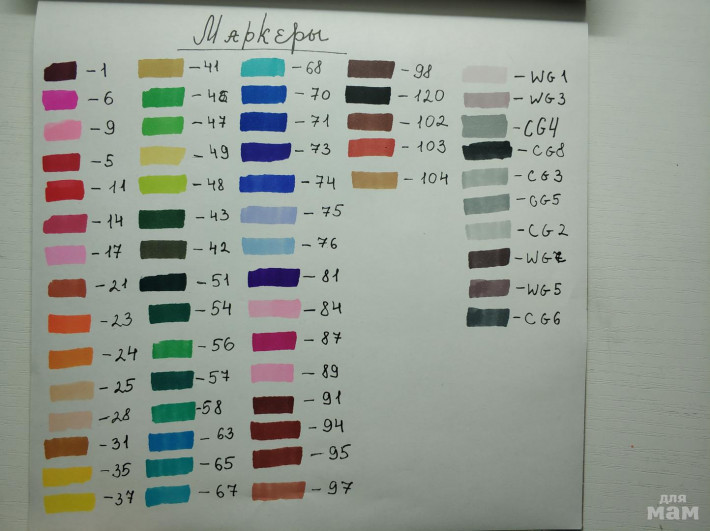 Маркеры
-1
-6
-9
-5
-11
-14
-17
-21
-23
-24
-25
-28
-31
-35
-37
-41
-47
-49
-48
-43
-42
-51
-54
-56
-57
-58
-63
-65
-67
-68
-70
-71
-73
-74
-75
-76
-81
-84
-87
-89
-91
-94
-95
-97
-98
-120
-102
-103
-104
-WG1
-WG3
-CG4
-CG8
-CG3
-CG2
-WG5
-CG6
для
мам